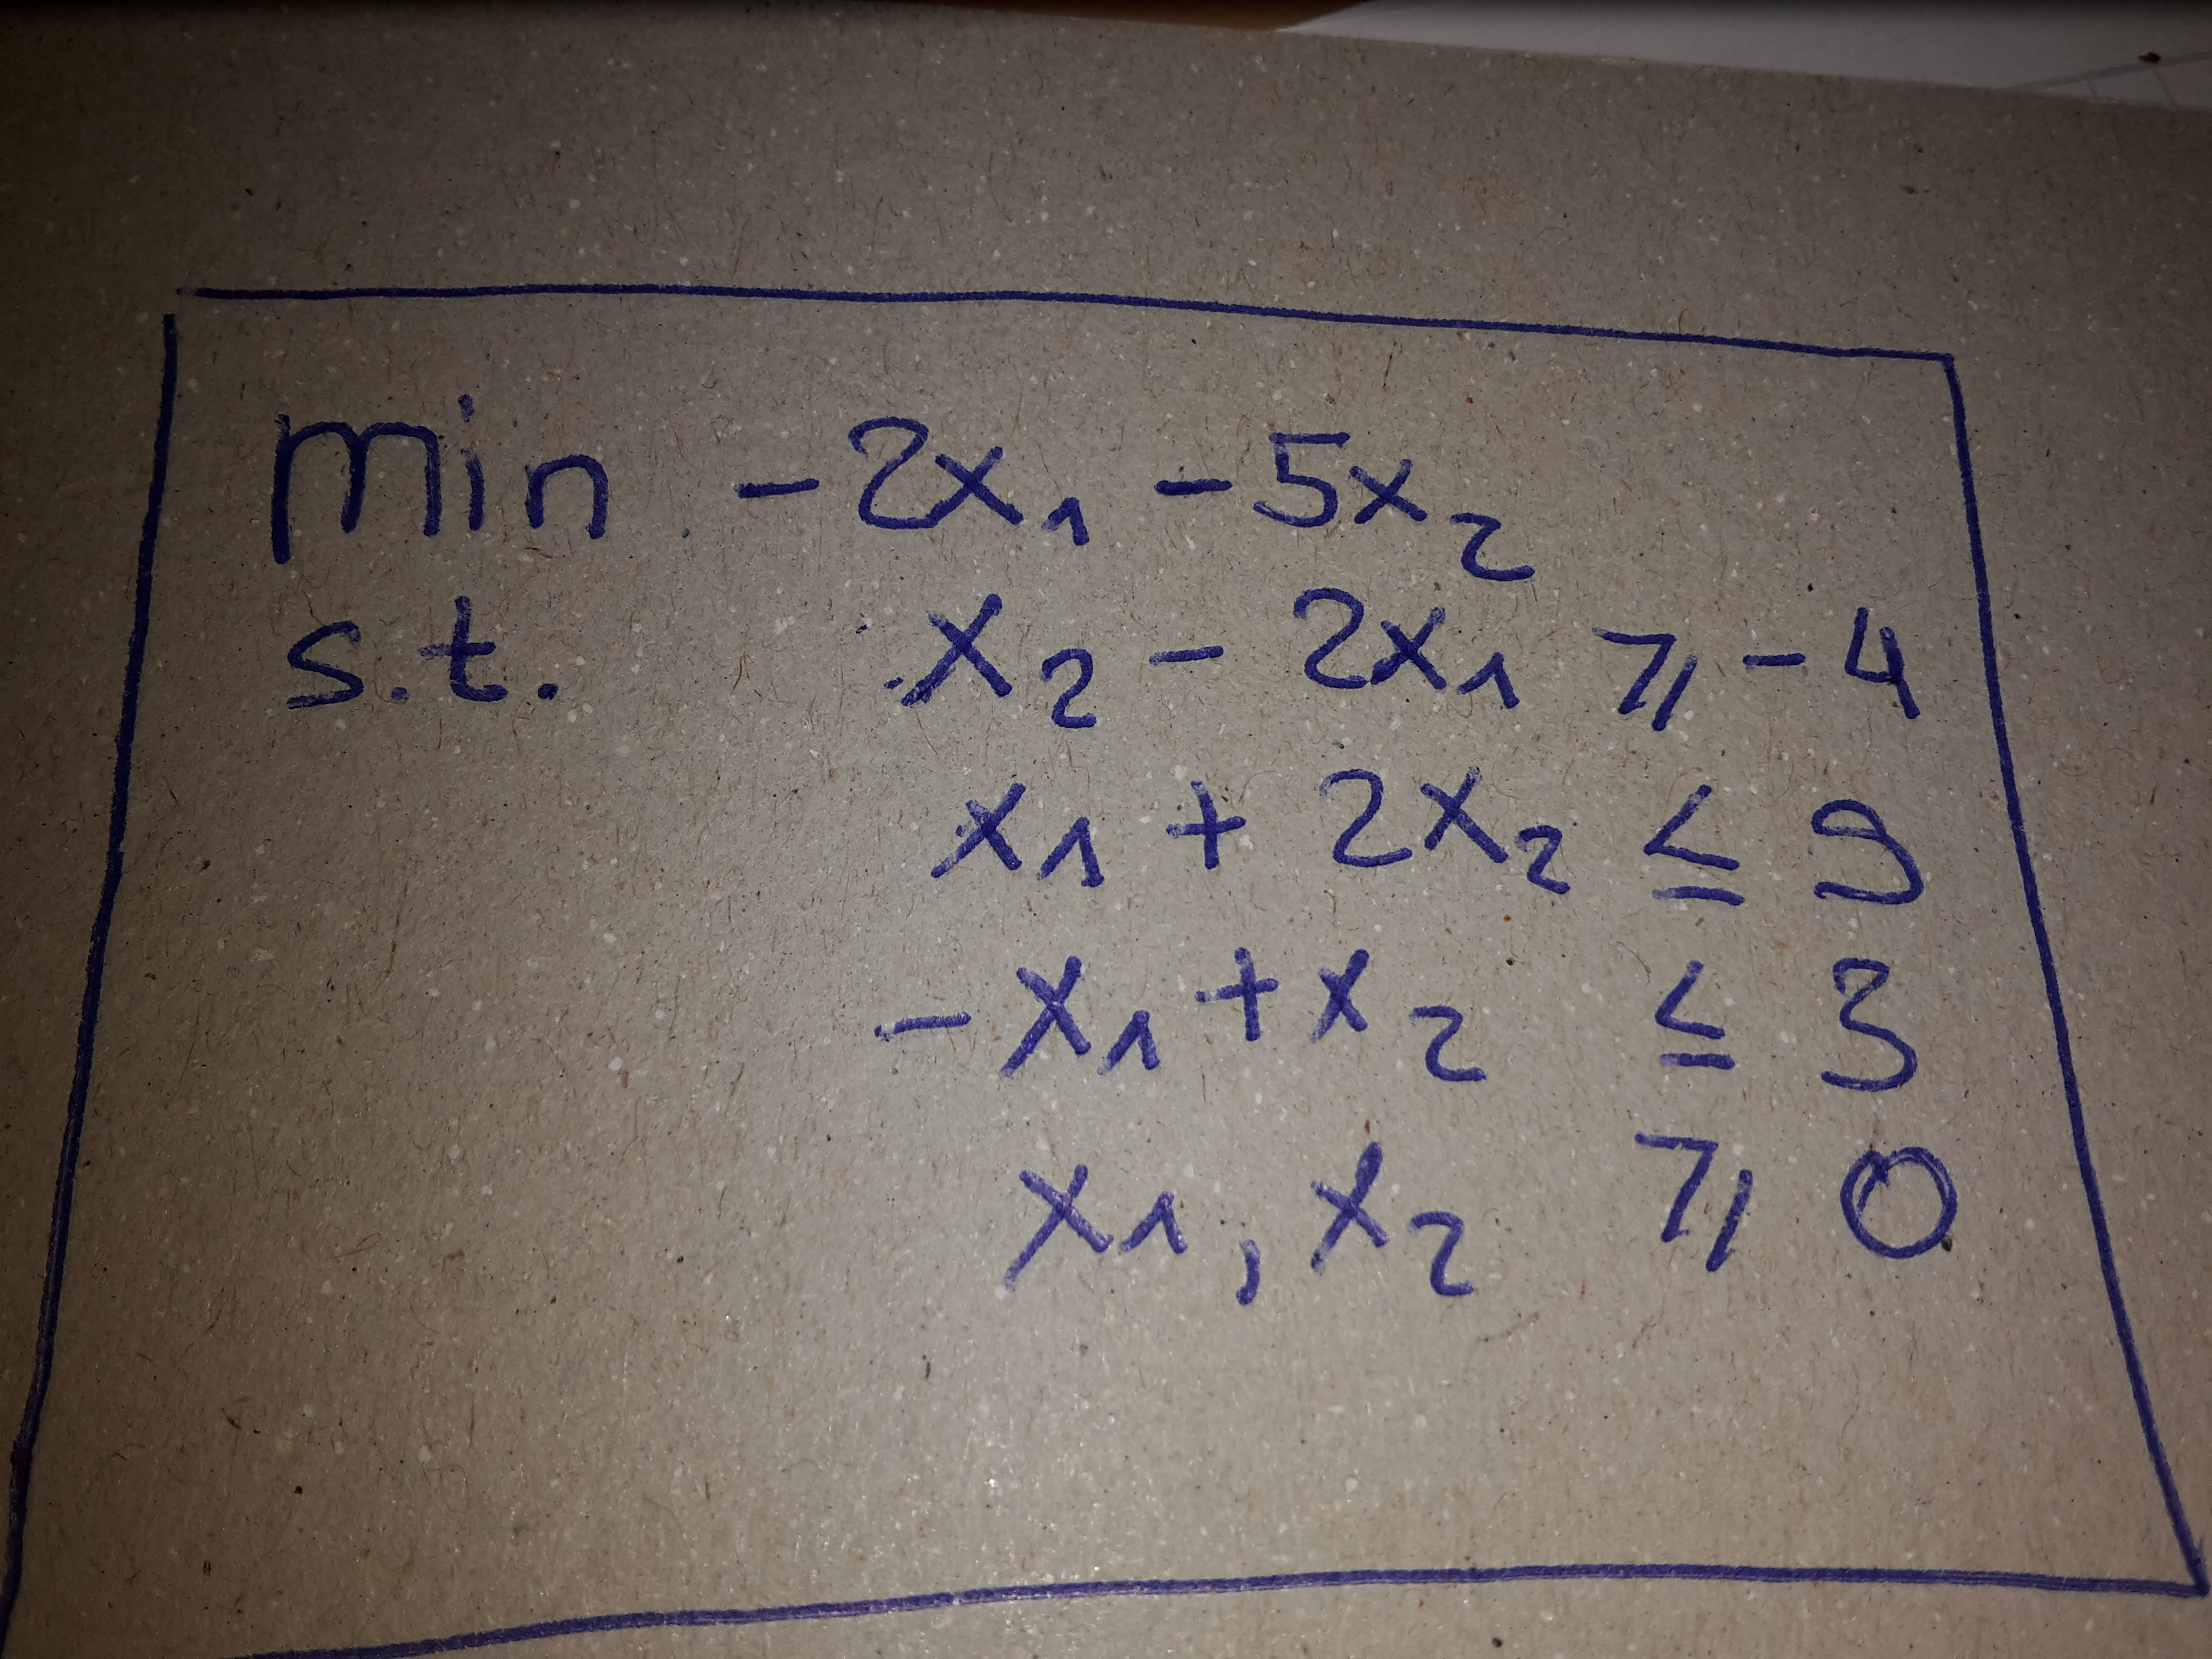 min -2x₁ -5x₂
s.t. x₂ - 2x₁ ⩾ -4
x₁ + 2x₂ ≤ 9
-x₁ + x₂ ≤ 3
x₁, x₂ ⩾ 0